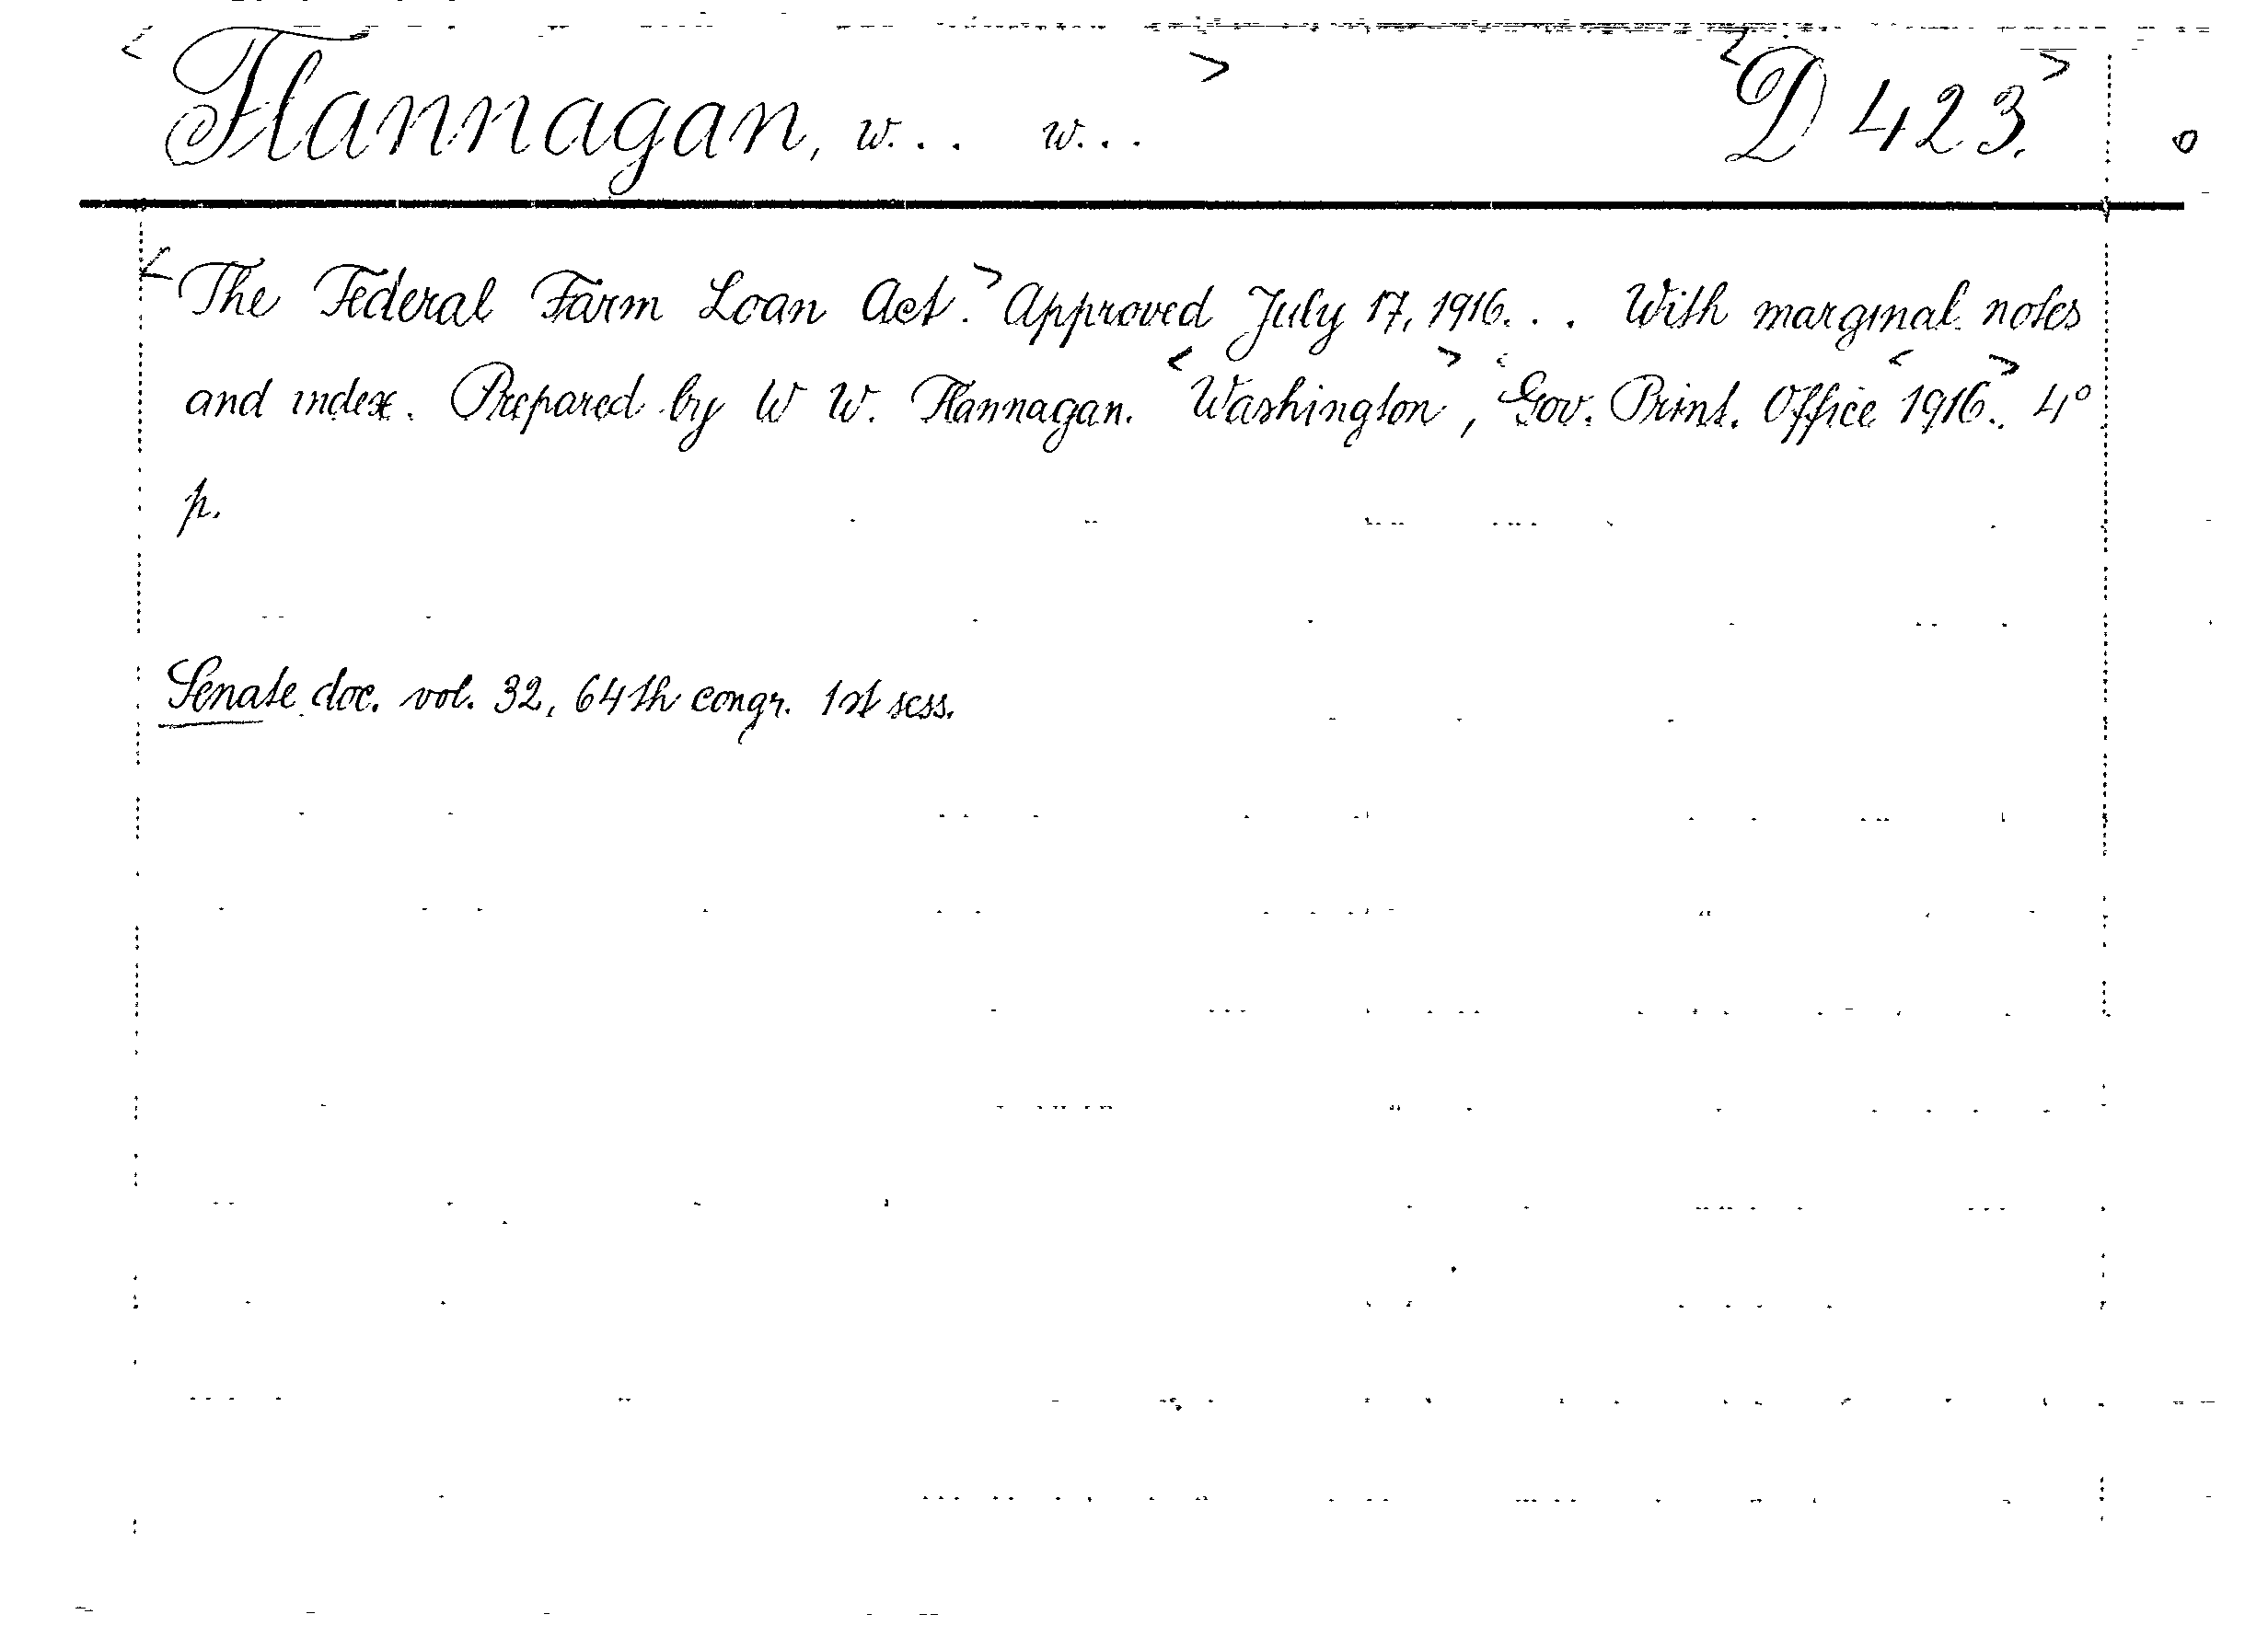 <Flannagan, w... w...> <D 423.>
<The Federal Farm Loan Act.> Approved July 17, 1916... With marginal notes
and index. Prepared by W W. Flannagan. <Washington>, <Gov. Print. Office <1916>. 4°
p.
Senate doc. vol. 32, 64th congr. 1st sess.